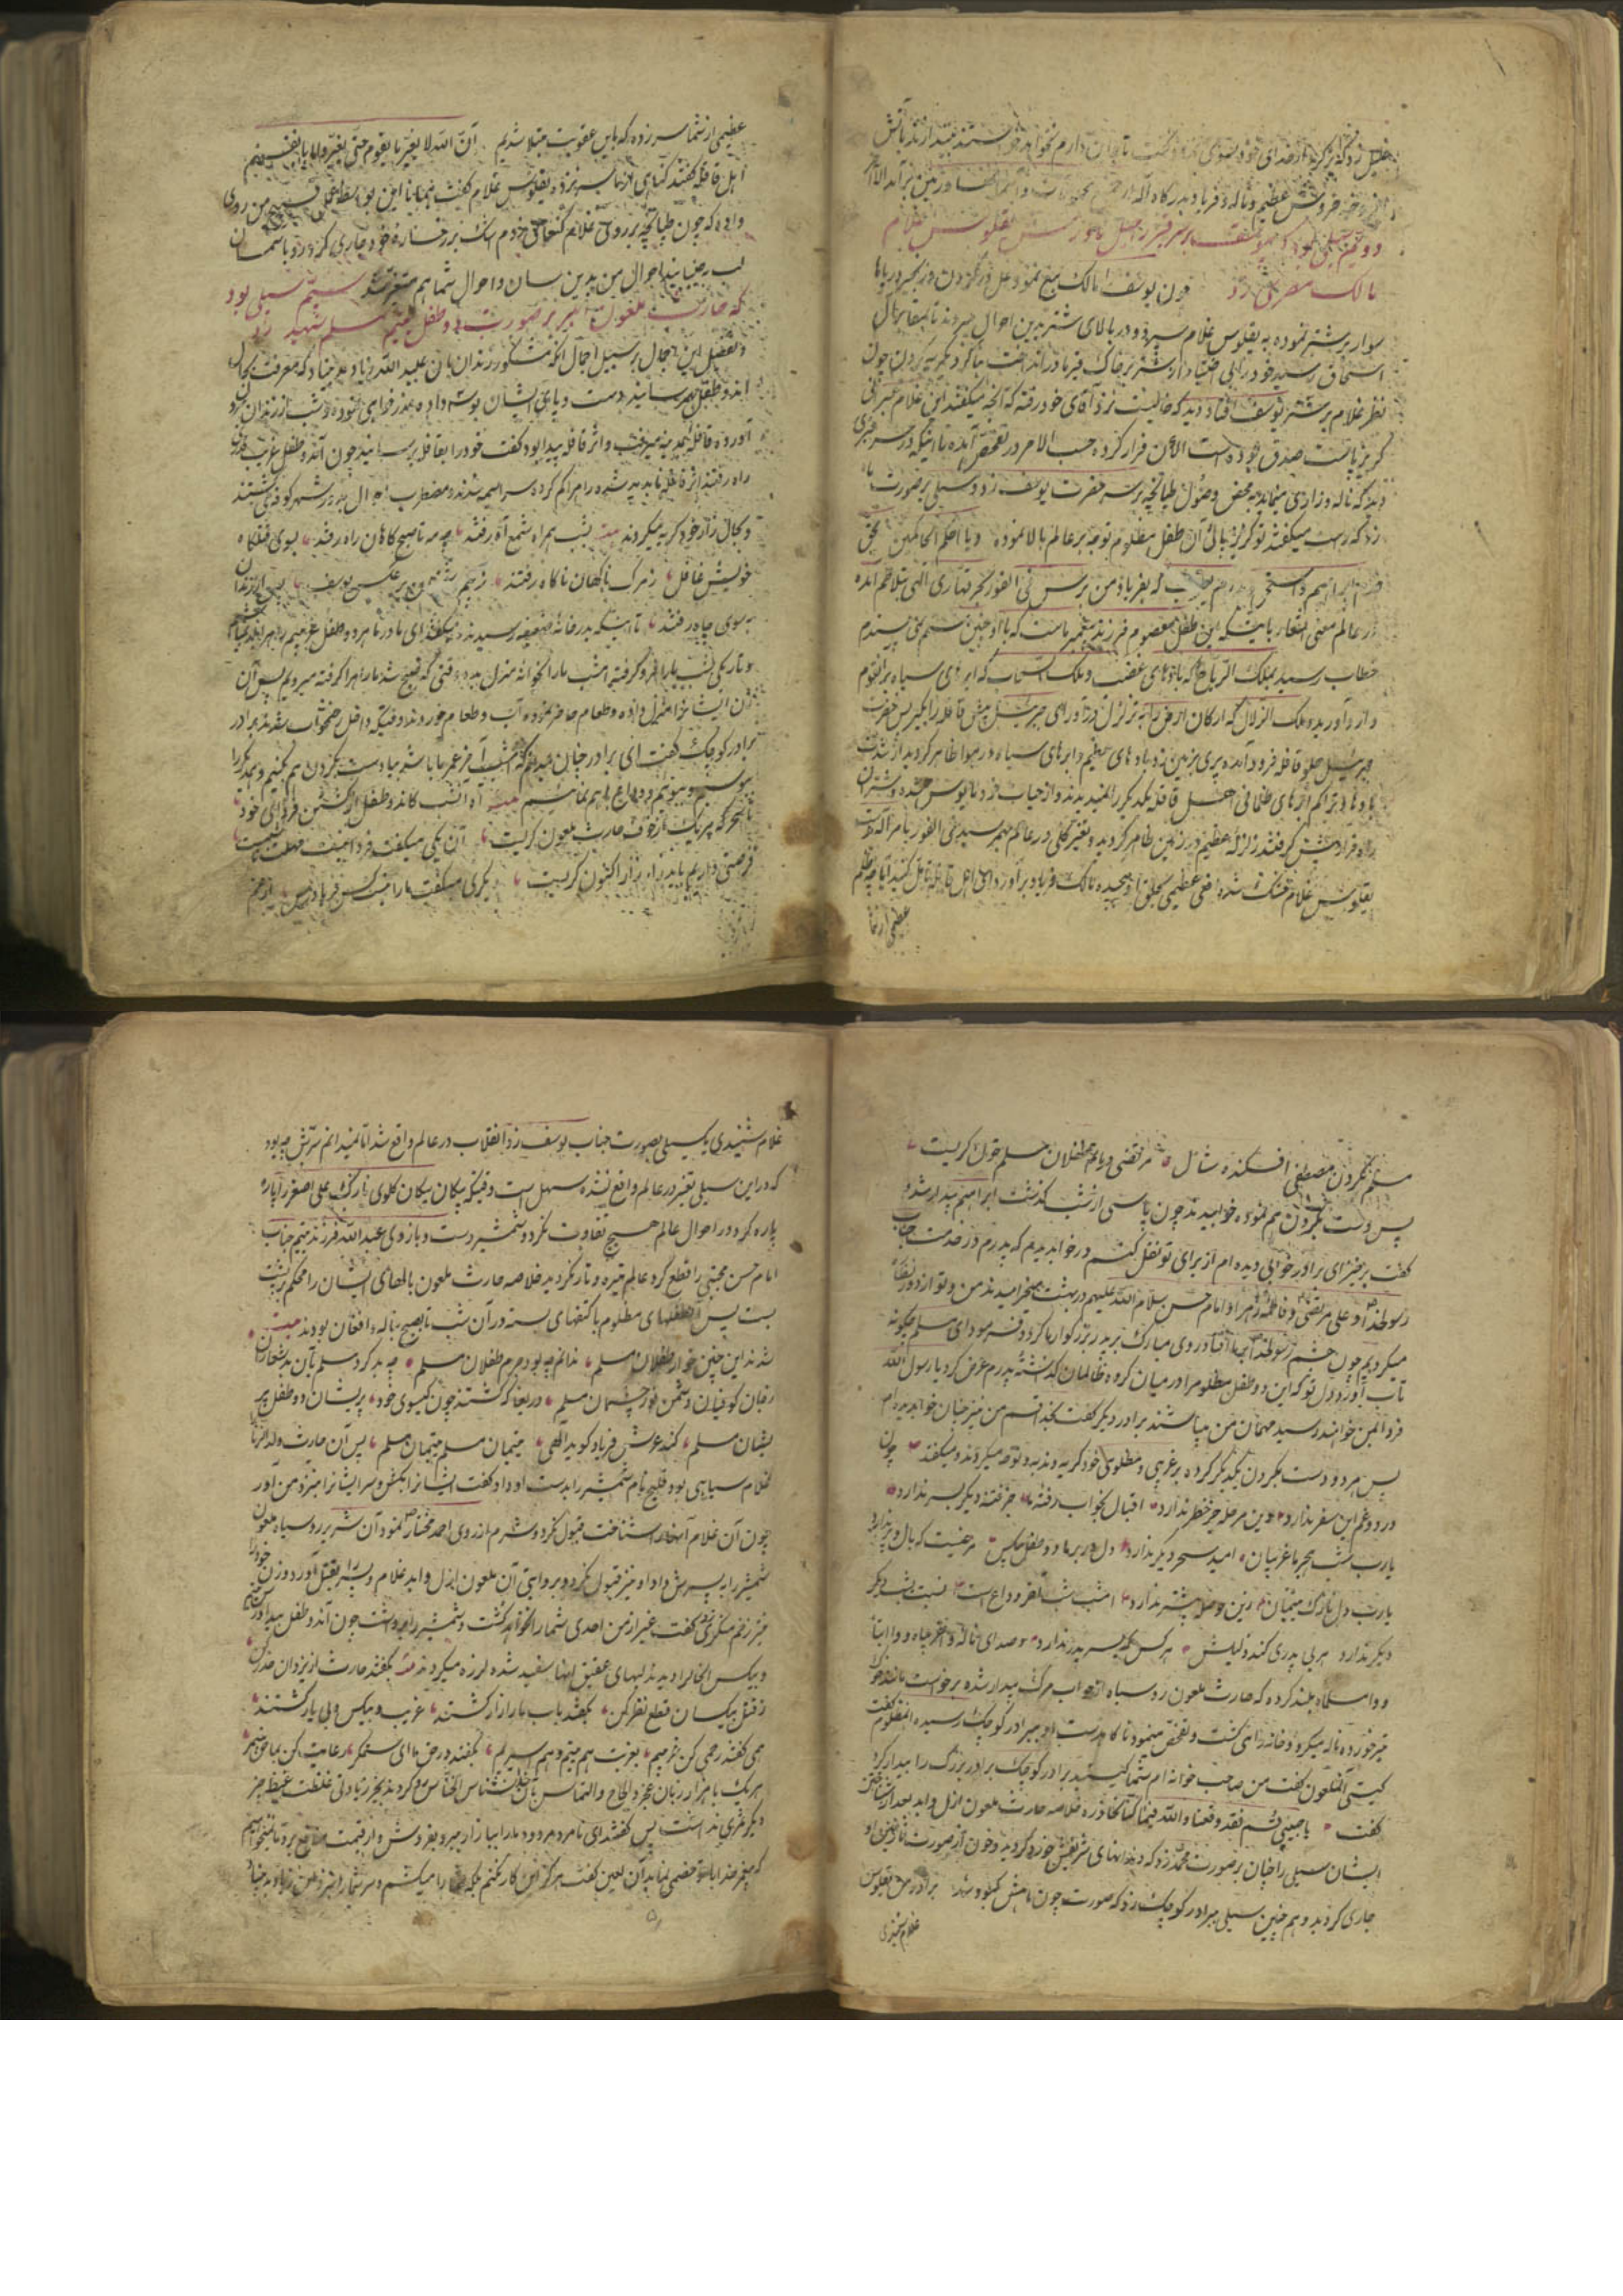 دویم سیلی بود که بر سر قبر راحیل مادرش یقلوس غلام
مالک مصری زد چون یوسف را مالک بیع نمود و غل در گردن و زنجیر در پاها
سوار بر شتر نموده به یقلوس غلام سپرد و در بالای شتر بدین احوال میبردند تا بمقابر آل
اسحاق رسید خود را بی اختیار از شتر بر خاک قبر مادر انداخت بنا کرد بگریه کردن چون
نظر غلام بر شتر یوسف افتاد دید که خالیست نزد آقای خود رفته که آنچه میگفتند این غلام عبرانی
گریزپاست صدق بوده است الآن فرار کرده حسب الامر در تفحص آمده تا اینکه در سر قبری
دید که ناله و زاری مینماید به محض وصول طپانچه بر سر حضرت یوسف زد و سیلی بر صورت ماه
زد که راست میگفتند تو گریزپائی آن طفل مظلوم توجه بر عالم بالا نموده و یا احکم الحاکمین بحق
بفریاد من برس فی الفور بحر قهاری الهی بتلاطم آمده
در عالم معنی اشعار یافت که این طفل معصوم فرزند پیغمبر ماست که با او چنین ستم می پسندم
خطاب رسید بملک الریاح که بادهای عنف و ملک السحاب که ابرهای سیاه بر انقوم
وارد آورید و ملک الزلزال که ارکان ارض را به تزلزل در آور ای جبرئیل پیش قافله را بگیر پس حضرت
جبرئیل جلو قافله فرود آمده پری بر زمین زد بادهای عظیم و ابرهای سیاه در هوا ظاهر گردید از شدت
بادها و تراکم ابرهای ظلمانی اهل قافله یکدیگر را نمیدیدند و از حیات خود مأیوس شده و شتران
راه فرار پیش گرفتند زلزله عظیم در زمین ظاهر گردید و تغیر کلی در عالم بهم رسید فی الفور با مر آلهی دست
یقلوس غلام خشک شده افعی عظیمی بحلق او پیچیده مالک فریاد بر آورد ای اهل قافله تأمل کنید آیا چه ظلم
عظیمی از شما
عظیمی از شما سر زده که باین عقوبت مبتلا شدیم ان الله لا یغیر ما بقوم حتی یغیروا ما بانفسهم
اهل قافله گفتند گناهی از ما سر نزد یقلوس غلام گفت همانا این بواسطه عمل قبیح من روی
داده که چون طپانچه بر روی غلام کنعانی زدم اشک بر رخساره خود جاری کرد رو باسمان
لب جنبانید احوال من بدین سان و احوال شما هم متغیر شد سیم سیلی بود
که حارث ملعون بر صورت دو طفل یتیم مسلم شهید زد
و تفصیل این اجمال بر سبیل اجمال آنکه مشکور زندان بان عبید الله زیاد بد بنیاد که معرفت بحال
اندو طفل بهم رسانید دست و پای ایشان بوسه داده عذر خواهی نموده و شب از زندان بیرون
آورده قافله بمدینه میرفت و اثر قافله پیدا بود گفت خود را بقافله برسانید چون آندو طفل غریب قدری
راه رفتند اثر قافله ناپدید شده راه را گم کرده سراسیمه شدند و مضطرب الاحوال بدور شهر کوفه می گشتند
و بحال زار خود گریه میکردند بیت بشب همراه شمع آه رفتند همه تا صبحگاهان راه رفتند بسوی قتلگاه
خویش غافل ز مرگ ناگهان ناگاه رفتند
بسوی چاه رفتند تا اینکه بدر خانه ضعیفه رسیدند میگفتند ای مادر ما هر دو طفل غریبیم راهرا نمیدانیم
و تاریکی شب ما را فرو گرفته امشب ما را بخانه منزل بده وقتی که صبح شد ما راه را گرفته میرویم پس آن
زن ایشانرا منزل داده و طعام حاضر نموده آب و طعام خوردند و وقتیکه داخل رختخواب شدند برادر
برادر کوچک گفت ای برادر چنان میدانم که امشب آخر عمر ما باشد بیا دست بگردن هم کنیم و یکدیگر را
ببوسیم و ببوئیم و وداع با هم نمائیم بیت آه امشب کاندو طفل از کشتن فردای خود
تا سحر گه هر یک از خوف حارث ملعون گریست آن یکی میگفت فردا نیست مهلت
فرصتی داریم باید زار زار اکنون گریست دیگری میگفت ما را نیست کس فریاد رس
مسلم بگردون مرتضی در ماتم طفلان مسلم خون گریست
پس دست بگردن هم نموده خوابیدند چون پاسی از شب گذشت ابراهیم بیدار شده
گفت برخیز ای برادر خوابی دیده ام از برای تو نقل کنم در خواب دیدم که پدرم در خدمت جناب
رسولخدا و علی مرتضی و فاطمه زهرا و امام حسن سلام الله علیهم در بهشت میخرامیدند من و تو از دور نظاره
میکردیم چون چشم رسولخدا بر ما افتاد روی مبارک بر پدر بزرگوار ما کرد و فرمود ای مسلم چگونه
تاب آورد دل تو که این دو طفل مظلوم را در میان گروه ظالمان گذاشته پدرم عرض کرد یا رسول الله
فردا بمن خواهند رسید مهمان من میباشند برادر دیگر گفت بخدا قسم من نیز چنان خواب دیده ام
پس هر دو دست بگردن یکدیگر کرده بر غریبی و مظلومی خود گریه و ندبه و نوحه میکردند و میگفتند چون
درد و غم این سفر ندارد وین مرحله جز خطر ندارد اقبال بخواب رفته ما جز فتنه دیگر بسر ندارد
یارب شب هجر ما غریبان امید سحر دیگر ندارد دل در بر ما دو طفل بیکس مرغیست که بال و پر ندارد
یارب دل نازک یتیمان زین حوصله بیشتر ندارد امشب شب آخر وداع است نیست شب دیگر
دیگر ندارد هر بی پدری کند ذلیلش هر کس که بسر پدر ندارد صدای ناله وا غریباه و وا ابتا
و وا مسلماه بلند کرده که حارث ملعون رو سیاه از خواب مرگ بیدار شده برخواست مانند خوک
تیر خورده ناله میکرد و خانه را می گشت و تفحص مینمود تا گاه دست او ببرادر کوچک رسیده آنمظلوم گفت
کیستی آنملعون گفت من صاحب خوانه ام شما کیستید برادر کوچک برادر بزرگ را بیدار کرد
گفت یا حبیبی قم فقد وقعنا و الله فیما کنا نحاذره خلاصه حارث ملعون ازل و ابد بعد از شناختن
ایشان سیلی را چنان بر صورت محمد زد که دندانهای شریفش خورد گردید و خون از صورت نازنین او
جاری گردید و هم چنین سیلی ببرادر کوچک زد که صورت چون ماهش کبود شد برادر من یقلوس
غلام شنیدی
غلام شنیدی یک سیلی بصورت جناب یوسف زد انقلاب در عالم واقع شد اما نمیدانم سرّش چه بود
که در این سیلی تغیر در عالم واقع نشده سهل است وقتیکه پیکان پیکان گلوی نازک علی اصغر را پاره
پاره کرد در احوال عالم هیچ تفاوت نکرد و شمشیر دست و بازوی عبدالله فرزند یتیم جناب
امام حسن مجتبی را قطع کرد عالم تیره و تار نگردید خلاصه حارث ملعون بالهای ایشان را محکم بر پشت
بست پس طفلهای مظلوم با کتفهای بسته در آن شب تا بصبح بناله و افغان بودند بیت
شدند این چنین خوار طفلان مسلم ندانم چه بود جرم طفلان مسلم چه بد کرد مسلم بآن بد شعاران
رقیبان کوفیان دشمن نور چشمان مسلم دریغا که گشتند چون گیسوی خود پریشان دو طفل پر
یشان مسلم کند عرش فریاد گوید الهی یتیمان مسلم یتیمان مسلم پس آن حارث ولد الزنا
غلام سیاهی بود فلیح نام شمشیر را بدست او داد گفت ایشانرا بکش و سر ایشانرا بنزد من آور
چون آن غلام آنها را شناخت قبول نکرد و شرم از روی احمد مختار نمود آن شریر رو سیاه ملعون
شمشیر را به پسرش داد او نیز قبول نکرد و بروایتی آن ملعون ازل و ابد غلام و پسر را بقتل آورد و زن خود را
نیز زخم منکری زد گفت غیر از من احدی شما را نخواهد کشت و شمشیر را برداشت چون آندو طفل
و بیکس انحال را دیدند لبهای عقیق آنها سفید شده لرزه میکردند بیت بگفتند حارث از یزدان حذر کن
ز قتل بیکسان قطع نظر کن بگفتند باب ما را زار کشتند غریب و بیکس و بی یار کشتند
همی گفتند رحمی کن غریبیم بغربت هم یتیم و هم اسیریم بگفتند در حق ما ای ستمگر رعایت کن بما حق پیمبر
هر یک با هزار زبان عجز و الحاح و التماس بآن خدا نشناس الخناس میکردند بجز زیادتی غلظت غیظ چیز
دیگر ثمری نداشت پس گفتند ای نامرد مردود ما را ببازار ببر و بفروش و از قیمت ما نفع ببر و تا نمیخواهیم
که پیغمبر خدا با تو خصمی نماید آن لعین گفت هرگز این کار نکنم بلکه شما را میکشم و سر شما را بنزد ابن زیاد بد بنیاد